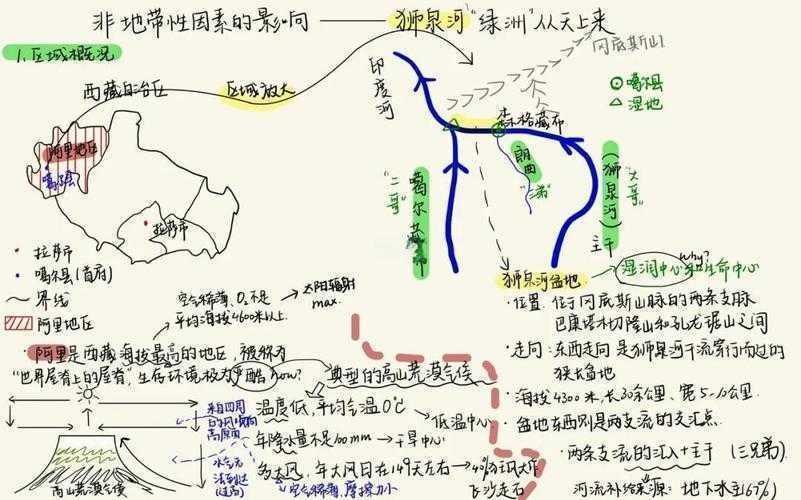 非地带性因素的影响 —— 狮泉河"绿洲"从天上来
1.区域概况
西藏自治区
区域放大
印度河
冈底斯山
噶尔县
湿地
森格藏布
阿里地区
噶尔县
拉萨市
朗曲
"三弟"
"二哥"
噶尔藏布
(狮泉河)
"大哥"
主干
拉萨市
噶尔县(首府)
界线
阿里地区
狮泉河盆地
why?
湿润中心和生命中心
空气稀薄、O₂不足
平均海拔4600米以上
太阳辐射
max.
·阿里是西藏海拔最高的地区,被称为
"世界屋脊上的屋脊",生存环境极为严酷 how?
典型的高山荒漠气候
来自四周
高原面
水气无
法到达
(过高)
高山荒漠气候
温度低,平均气温0℃
低温中心
年降水量不足100mm → 干旱中心
多大风,年大风日在149天左右
飞沙走石
空气稀薄、摩擦力小
·位置:位于冈底斯山脉的两条支脉
巴康塔木切隆山和孔龙琚山之间
·走向:东西走向 是狮泉河干流穿行而过的
狭长盆地
·海拔4300米,长30余公里、宽5-10公里.
·盆地东西则是两支流的交汇点.
·两条支流的汇入+主干 (三兄弟).
河流补给来源:地下水主(67%)